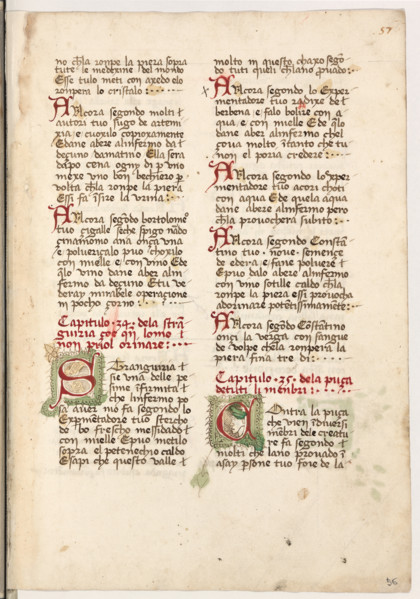 57
no chla ronpe la piera sopra
tute le medexine del mondo
Esse tulo meti con axedo elo
ronpera lo cristalo :
Alcora segondo molti t
autori tuo sugo de artemi
xia e cuoxilo copioxamente
Edane abere alinfermo da t
deçuno damatino Ella sera
dapo cena ogni dì uno
mexo uno bon bechiero p
volta chla ronpe la piera
Essi fa isire la urina :
Alcora segodo bortolomeo
tuo çigalle seche spigo nado
çinamomo ana onça una
e poluericalo puo chuxilo
con mielle e con uino Ede
qlo uino dane aber alin
fermo da deçuno Etu ve
deray mirabele operacione
in pocho çorno :
Capitulo .34. dela stra
guiria çoe qn lomo i
non puol orinare :
Stranguria t
sie una delle pe
sime ifirmita t
che linfermo po
sa auer ma fa segondo lo
Experimetadore tuo stercho
de bo frescho messidado t
con mielle Epuo metilo
sopra el petenechio caldo
Esapi che questo ualle t
molto in questo chaxo sego
do tuti queli chlano prouado :
Alcora segondo lo Exper
mentadore tuo radixe de t
berbena e falo bolire con a
qua e con mielle Ede qlo
dane aber alinfermo chel
çoua molto itanto che tu
non el poria credere :
Alcora segondo loxper
mentadore tuo acori choti
con aqua Ede quela aqua
dane abere alinfermo pero
chla prouochera subito :
Alcora segondo Consta
tino tuo noue semençe
de edera e fane poluere t
Epuo dalo abere alinfermo
con uino sotille caldo chla
ronpe la piera essi prouocha
adorinare potetissimamete :
Alcora segodo Costatino
onçi la uerga con sangue
de uolpe chela ronpera la
piera fina tre di :
Capitulo .35. dela puça
detuti li menbri :
Contra la puça
che uien i diuersi
mebri dele creatu
re fa segondo t
molti che lano prouado i
asay psone tuo foie de la
56